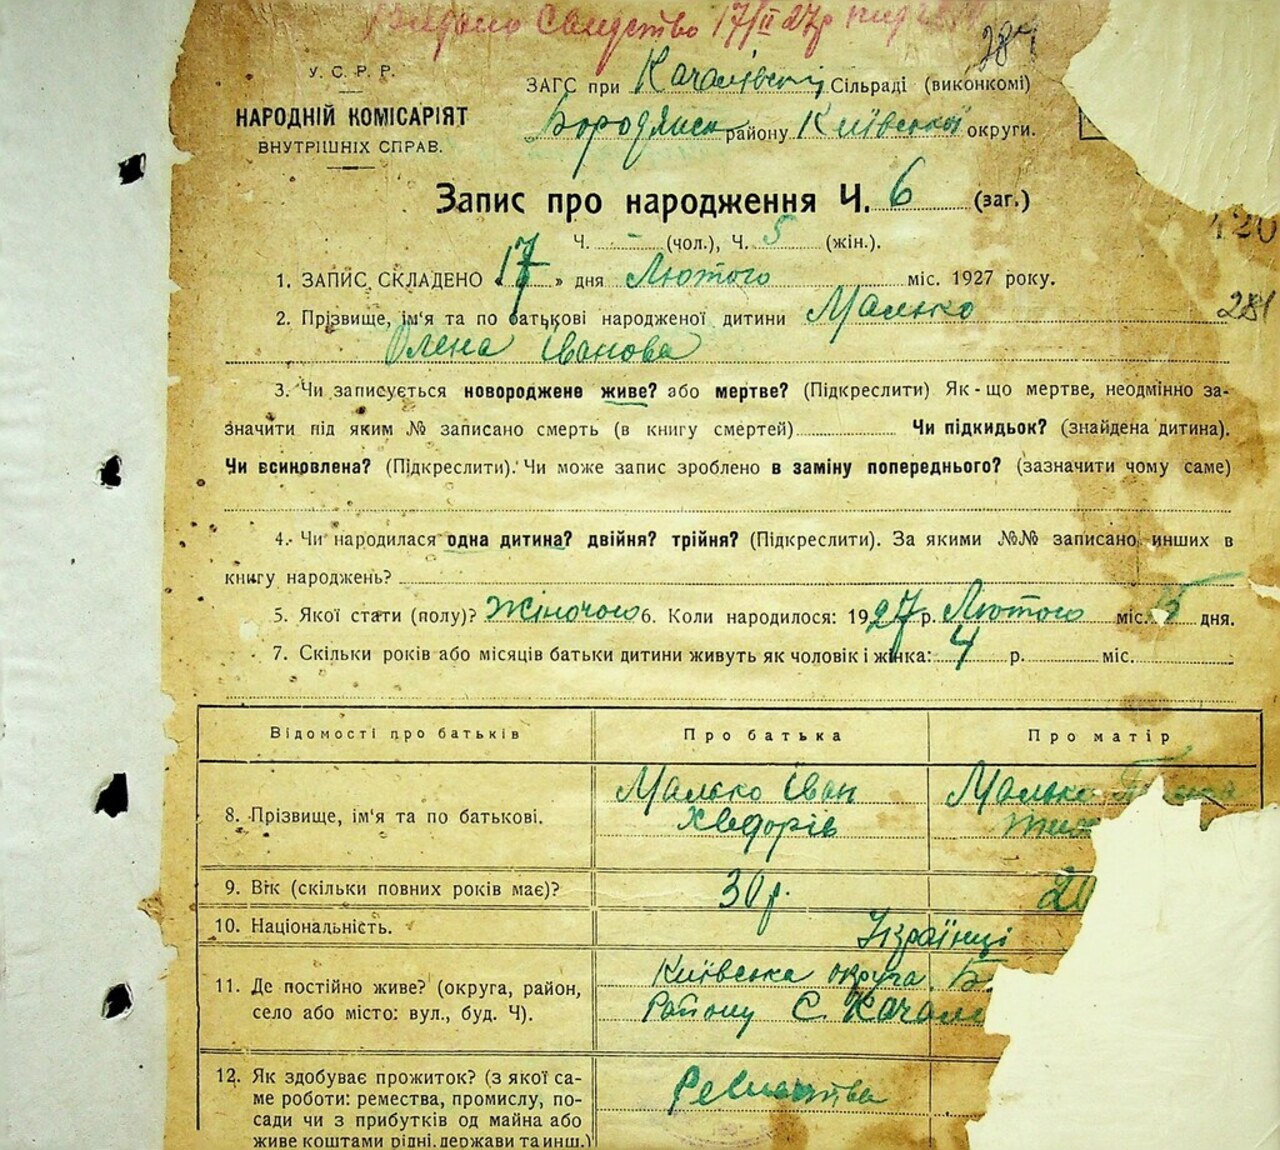 Видано Свидетство 17/II 27р
284
У. С. Р. Р.
НАРОДНІЙ КОМІСАРІЯТ
ВНУТРІШНІХ СПРАВ.
ЗАГС при Качалівській Сільраді (виконкомі)
Бородянск району Київської округи.
Запис про народження Ч. 6 (заг.)
120
Ч. - (чол.), Ч. 5 (жін.).
1. ЗАПИС СКЛАДЕНО 17 » дня Лютого міс. 1927 року.
2. Прізвище, ім'я та по батькові народженої дитини Малько
281
Олена Іванова
3. Чи записується новороджене живе? або мертве? (Підкреслити) Як-що мертве, неодмінно за-
значити під яким № записано смерть (в книгу смертей) Чи підкидьок? (знайдена дитина).
Чи всиновлена? (Підкреслити). Чи може запис зроблено в заміну попереднього? (зазначити чому саме)
4. Чи народилася одна дитина? двійня? трійня? (Підкреслити). За якими №№ записано инших в
книгу народжень?
5. Якої стати (полу)? Жіночого 6. Коли народилося: 1927 р. Лютого міс. 5 дня.
7. Скільки років або місяців батьки дитини живуть як чоловік і жінка: 4 р. міс.
Відомості про батьків Про батька Про матір
8. Прізвище, ім'я та по батькові.
Малько Іван Малько
Хведорів
9. Вік (скільки повних років має)? 30 р. 20
10. Національність. Українці
11. Де постійно живе? (округа, район,
село або місто: вул., буд. Ч).
Київська округа. Б.
Району С. Качалі
12. Як здобуває прожиток? (з якої са-
ме роботи: ремества, промислу, по-
сади чи з прибутків од майна або
живе коштами рідні, держави та инш.)
Ремества